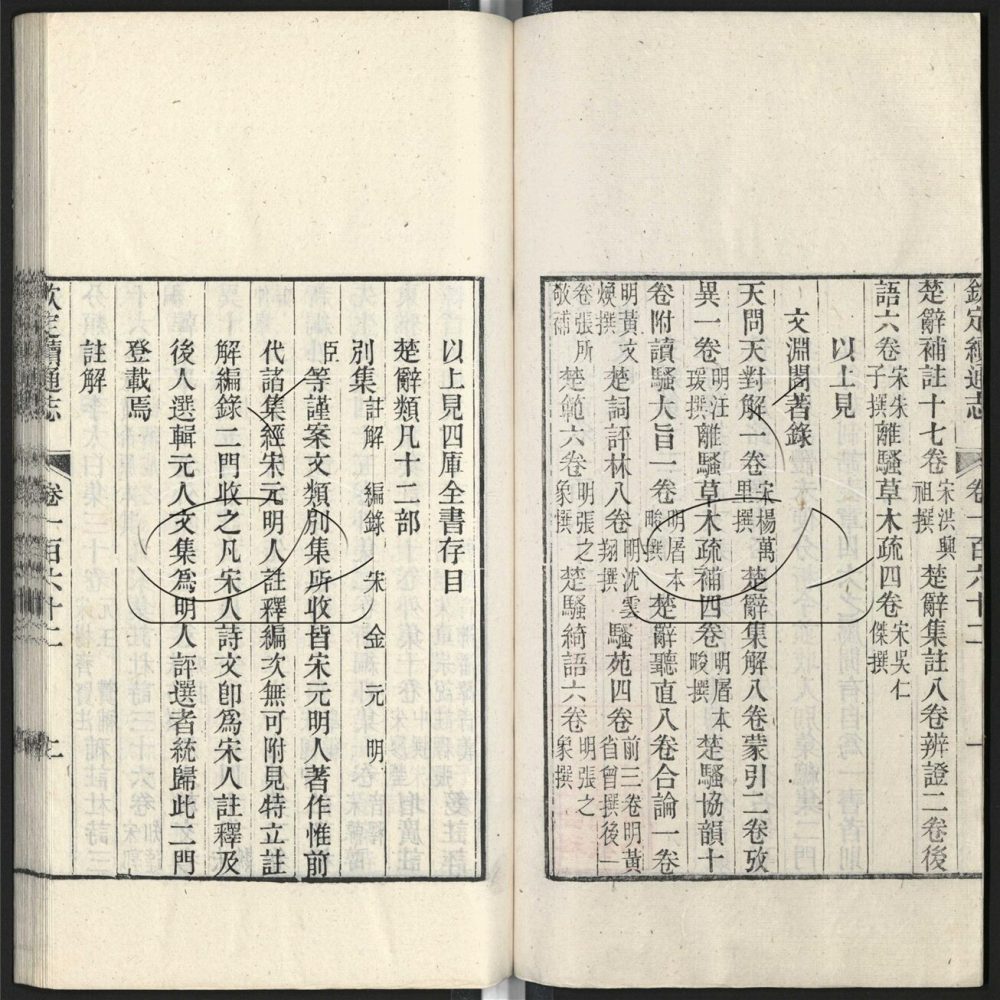 欽定續通志 卷一百六十二
楚辭補註十七卷宋洪興祖撰楚辭集註八卷辨證二卷後
語六卷宋朱子撰離騷草木疏四卷宋吳仁傑撰
以上見
文淵閣著錄
天問天對解一卷宋楊萬里撰楚辭集解八卷蒙引二卷攷
異一卷明汪瑗撰離騷草木疏補四卷明屠本畯撰楚騷協韻十
卷附讀騷大旨一卷明屠本畯撰楚辭聽直八卷合論一卷
明黃文煥撰楚詞評林八卷明沈雲翔撰騷苑四卷前三卷明黃省曾撰後一
卷張所敬補楚範六卷明張之象撰楚騷綺語六卷明張之象撰
以上見四庫全書存目
楚辭類凡十二部
別集註解 編錄 宋 金 元 明
臣等謹案文類別集所收皆宋元明人著作惟前
代諸集經宋元明人註釋編次無可附見特立註
解編錄二門收之凡宋人詩文卽為宋人註釋及
後人選輯元人文集為明人評選者統歸此二門
登載焉
註解
欽定續通志 卷一百六十二